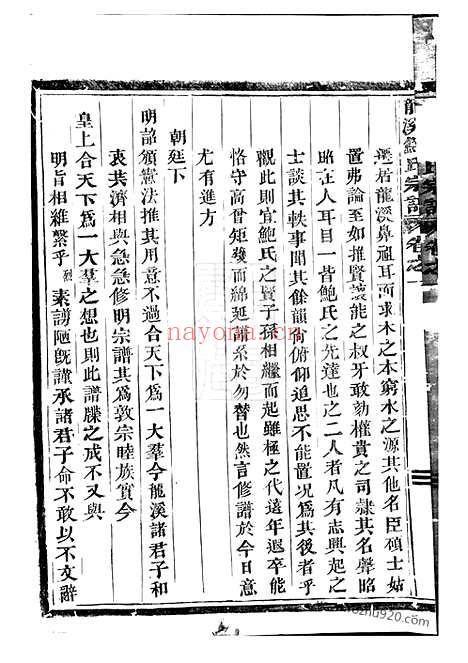 龍溪鮑氏宗譜 卷之一
遷居龍溪鼻祖耳而求木之本窮水之源其他名臣碩士姑
置弗論至如推賢讓能之叔牙敢劾權貴之司隷其名聲昭
昭在人耳目一昔鮑氏之先達也之二人者凡有志興起之
士談其軼事聞其餘韻尚俯仰追思不能置况爲其後者乎
觀此則宜鮑氏之賢子孫相繼而起雖極之代遠年遐卒能
恪守高曾矩矱而綿延嗣系於勿替也然言修譜於今日意
尤有進方
朝廷下
明詔頒憲法推其用意不過合天下爲一大羣今龍溪諸君子和
衷共濟相與急急修明宗譜其爲敦宗睦族實今
皇上合天下爲一大羣之想也則此譜牒之成不又與
明旨相維繫乎 素謭陋既謹承諸君子命不敢以不文辭
nayona.cn
zhupu920.com